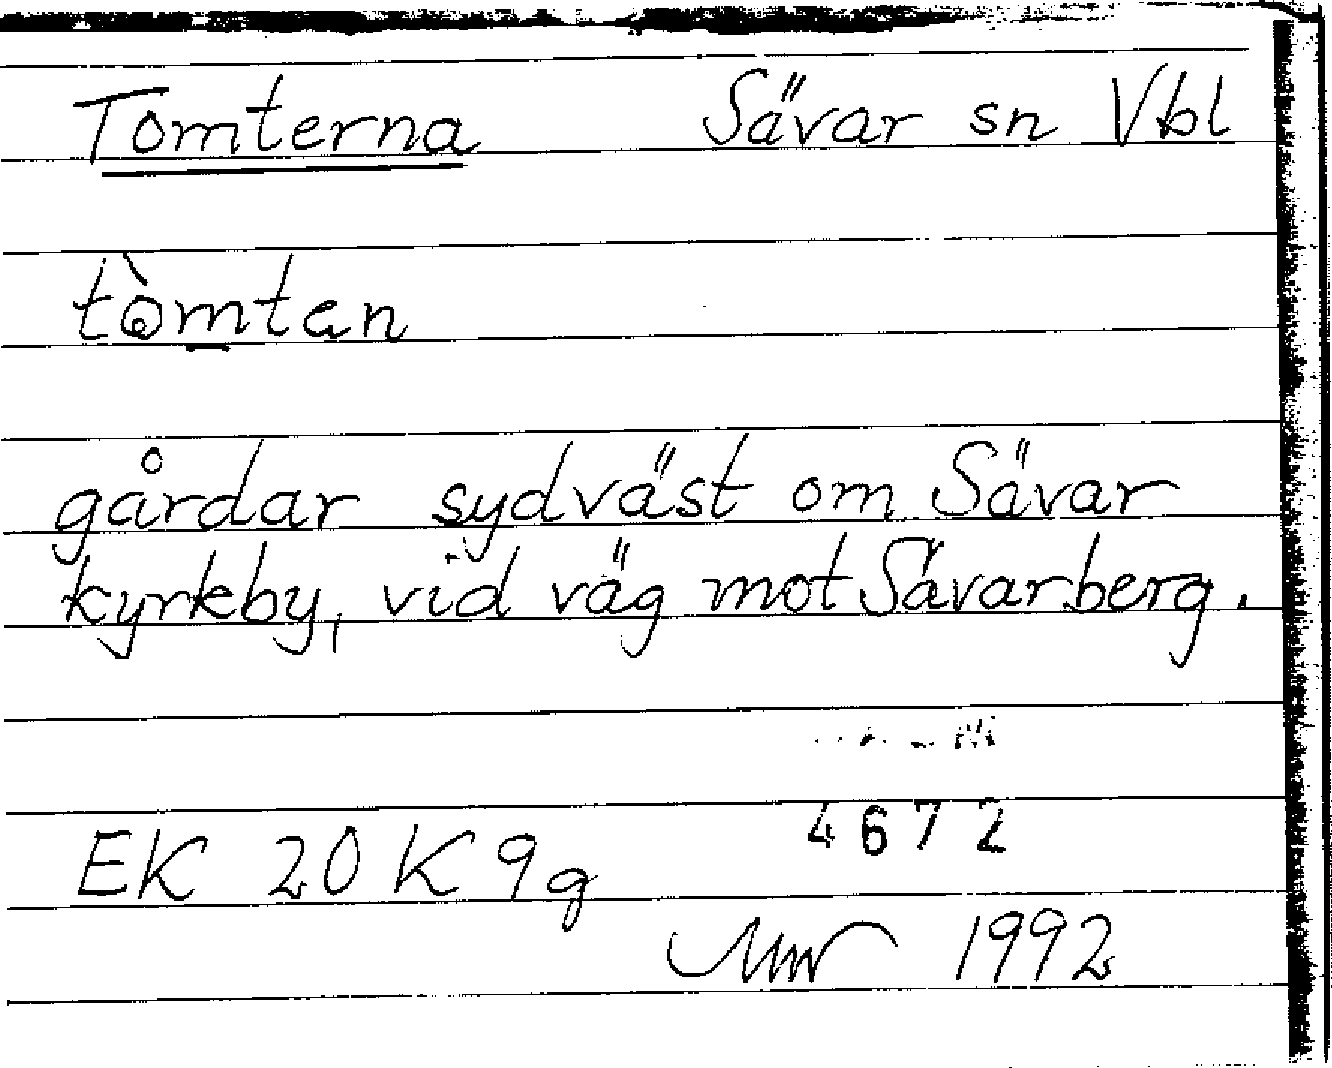 Tomterna Sävar sn Vbl
tòmtan
gårdar sydväst om Sävar
kyrkby, vid väg mot Sävarberg.
4672
EK 20 K 9g
1992